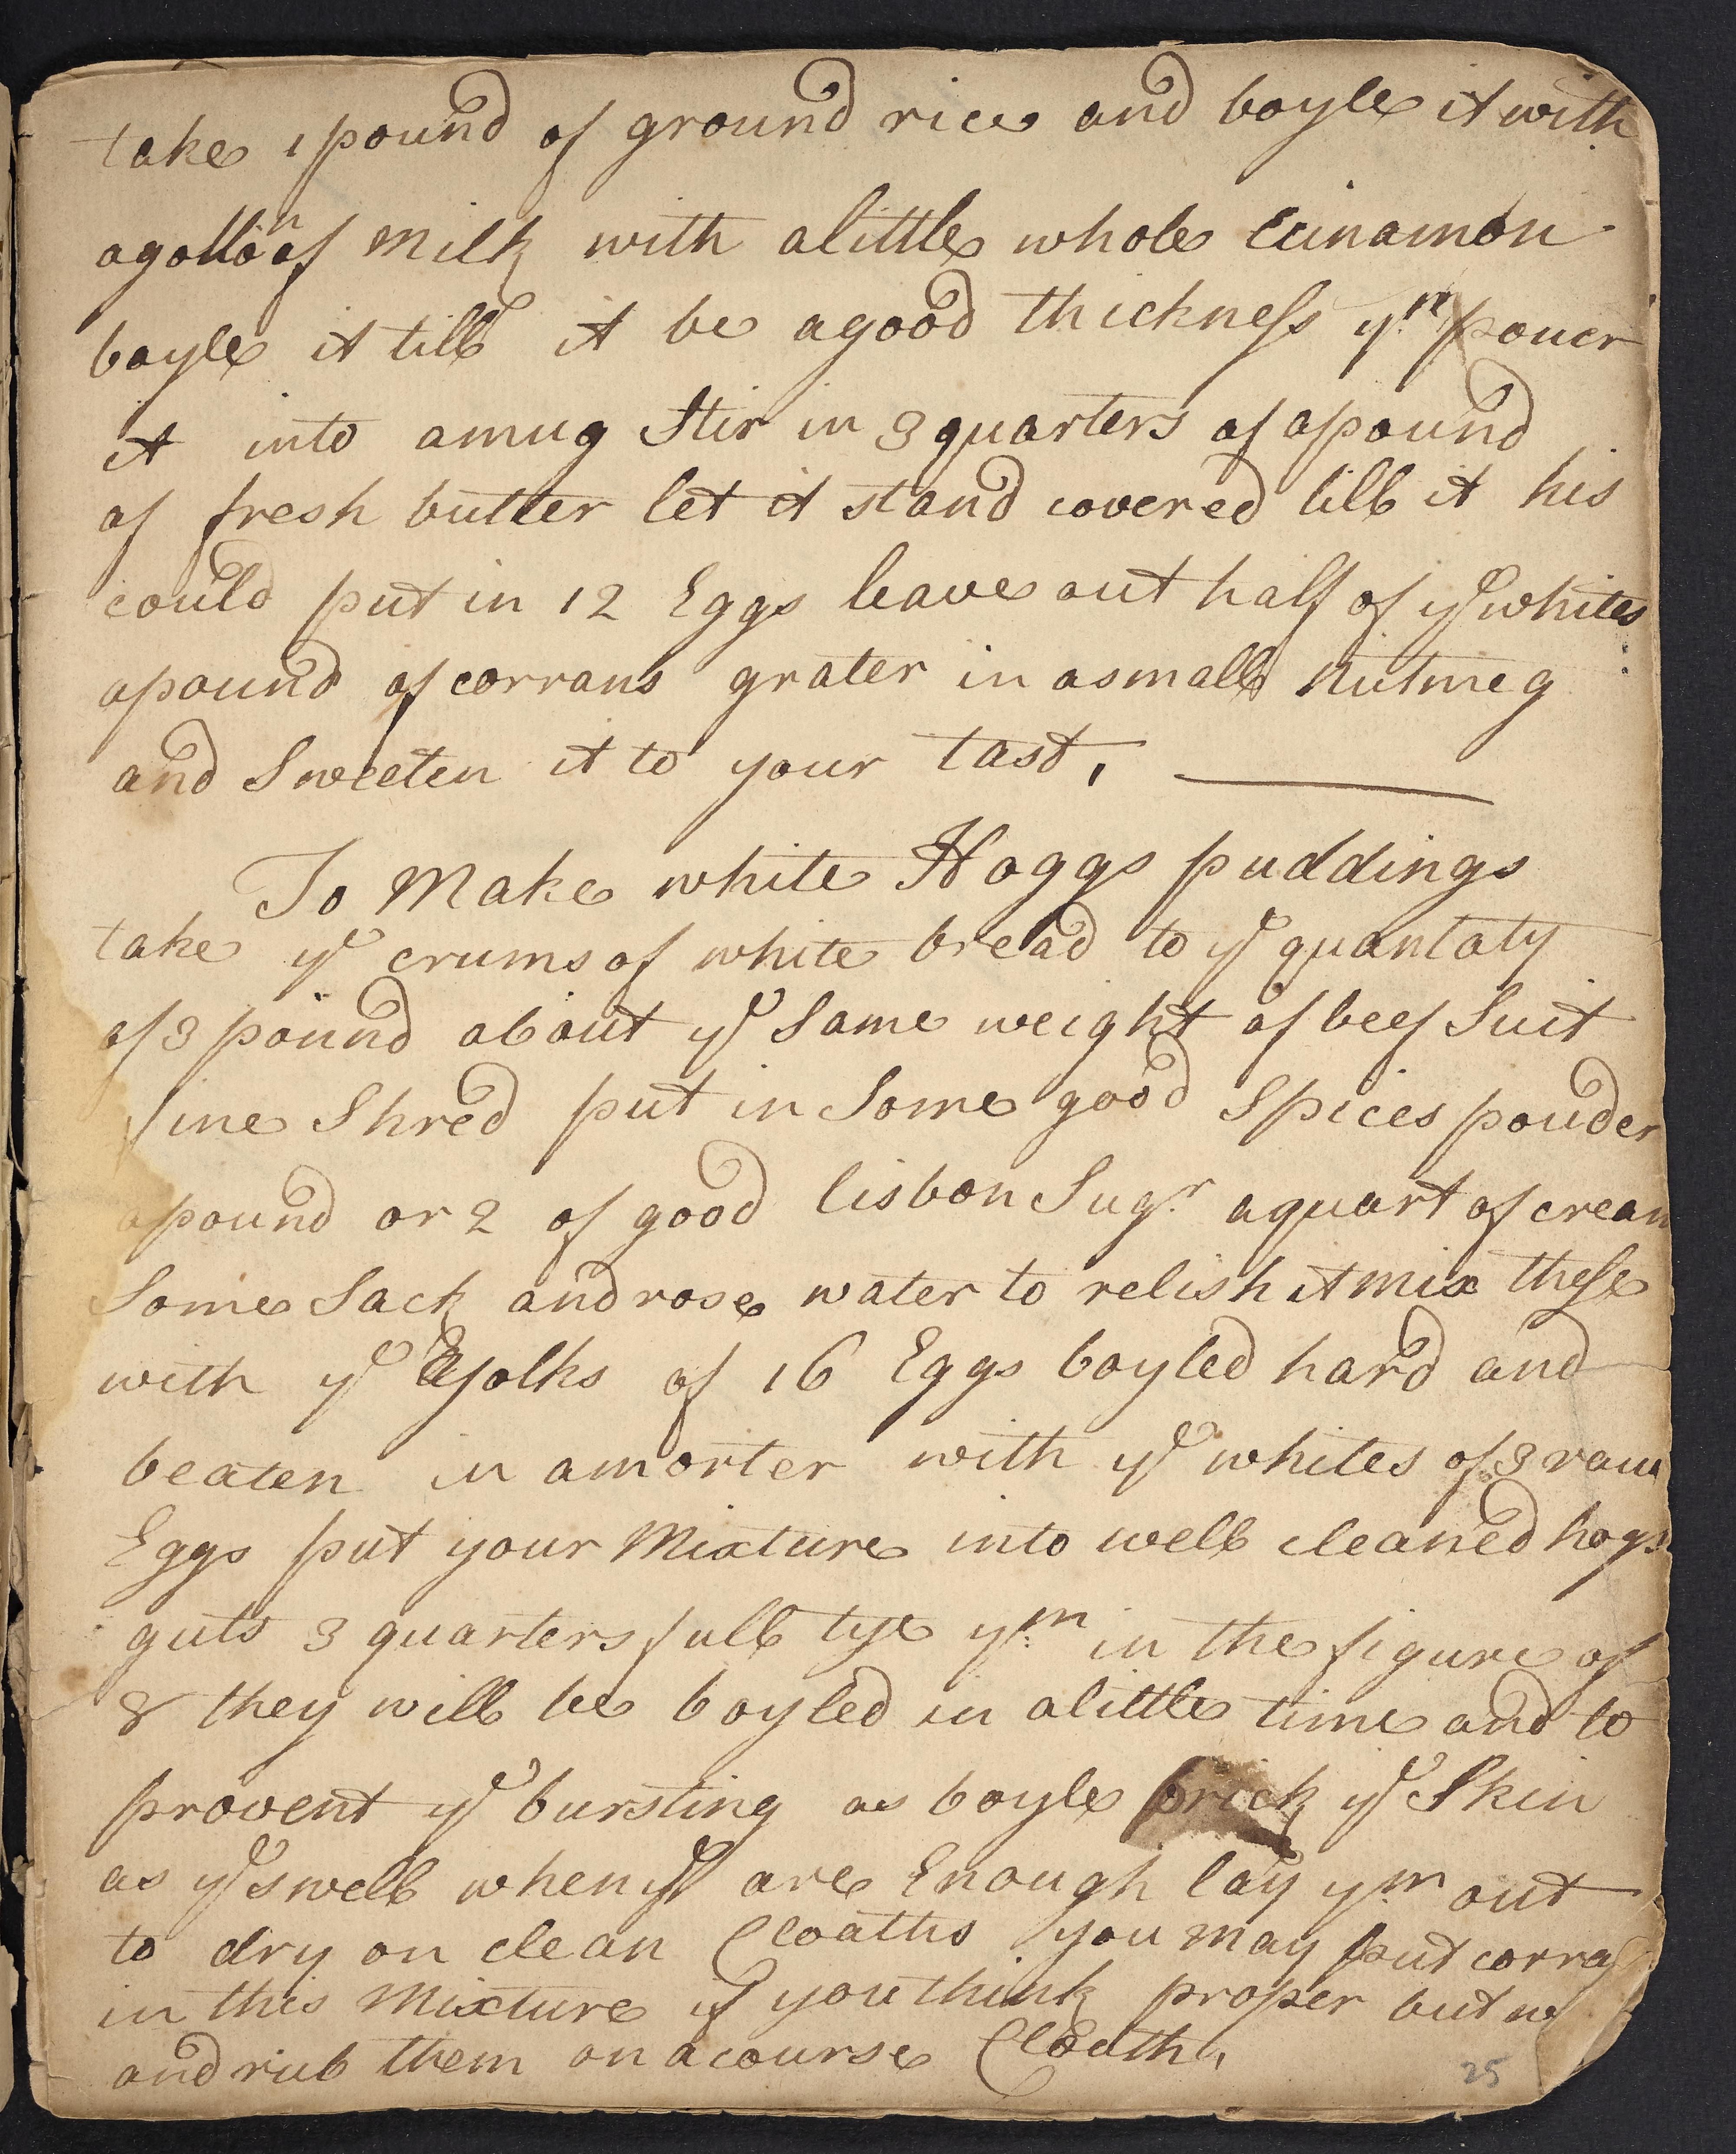 take 1 pound of ground rice and boyle it with
a gallon of Milk with a little whole Cinamon
boyle it till it be a good thickness yn pouer
it into a mug Stir in 3 quarters of a pound
of fresh butter let it stand covered till it his
could put in 12 Eggs leave out half of ye whites
a pound of corrans grater in a small Nutmeg
and Sweeten it to your tast,
To Make white Hoggs puddings
take ye crums of white bread to ye quantaty
of 3 pound about ye Same weight of beef Suit
fine Shred put in Some good Spices pouder
a pound or 2 of good lisbon Sugr a quart of cream
Some Sack and rose water to relish it mix these
with ye yolks of 16 Eggs boyled hard and
beaten in a morter with ye whites of 3 raw
Eggs put your Mixture into well cleaned hogs
guts 3 quarters full tye ym in the figure of
8 they will be boyled in a little time and to
provent ye bursting as boyle prick ye Skin
as ye swell when ye are Enough lay ym out
to dry on clean Cloaths you may put corra
in this Mixture if you think proper but
and rub them on a course Cloath,
25